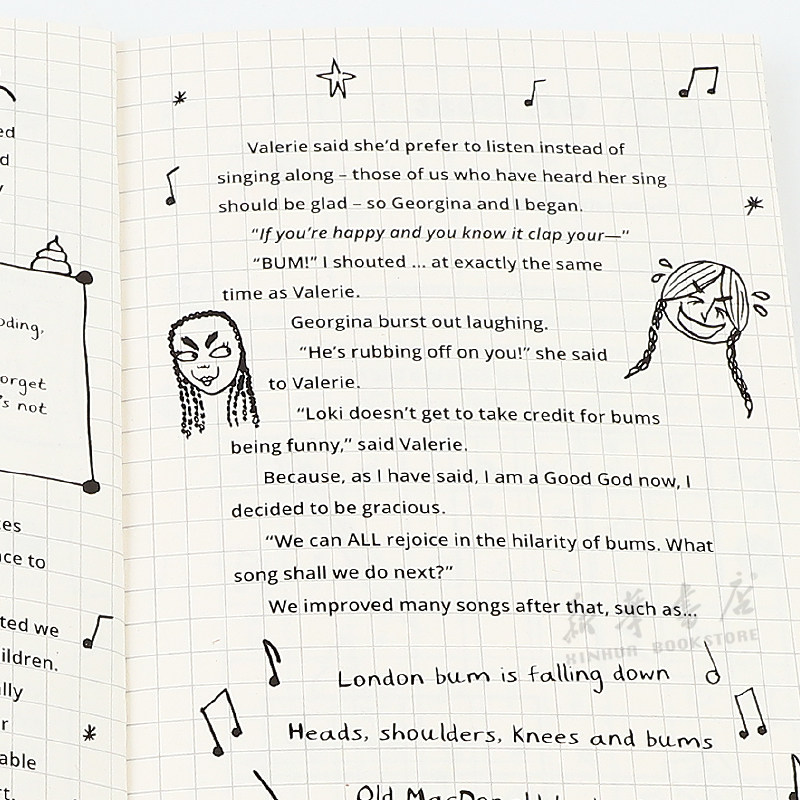 ed
d
y
oding,
orget
's not
ces
ce to
ted we
ildren.
lly
r
able
rt.
Valerie said she'd prefer to listen instead of
singing along – those of us who have heard her sing
should be glad – so Georgina and I began.
"If you're happy and you know it clap your—"
"BUM!" I shouted ... at exactly the same
time as Valerie.
Georgina burst out laughing.
"He's rubbing off on you!" she said
to Valerie.
"Loki doesn't get to take credit for bums
being funny," said Valerie.
Because, as I have said, I am a Good God now, I
decided to be gracious.
"We can ALL rejoice in the hilarity of bums. What
song shall we do next?"
We improved many songs after that, such as...
新华书店
XINHUA BOOKSTORE
London bum is falling down
Heads, shoulders, knees and bums
Old